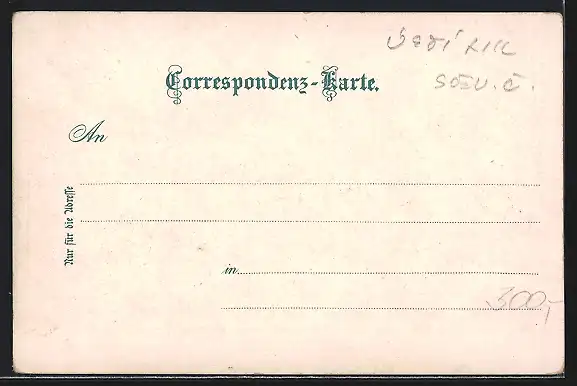 Correspondenz-Karte.
An
Nur für die Adresse
in
300,-